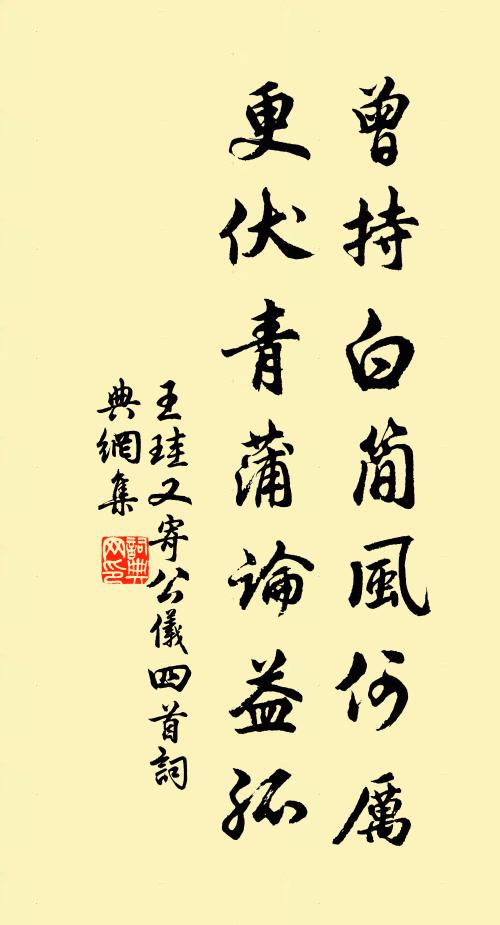 曾持白簡風何厲
更伏青蒲論益孤
王珪又寄公儀四首詞
典網集
詞典網印